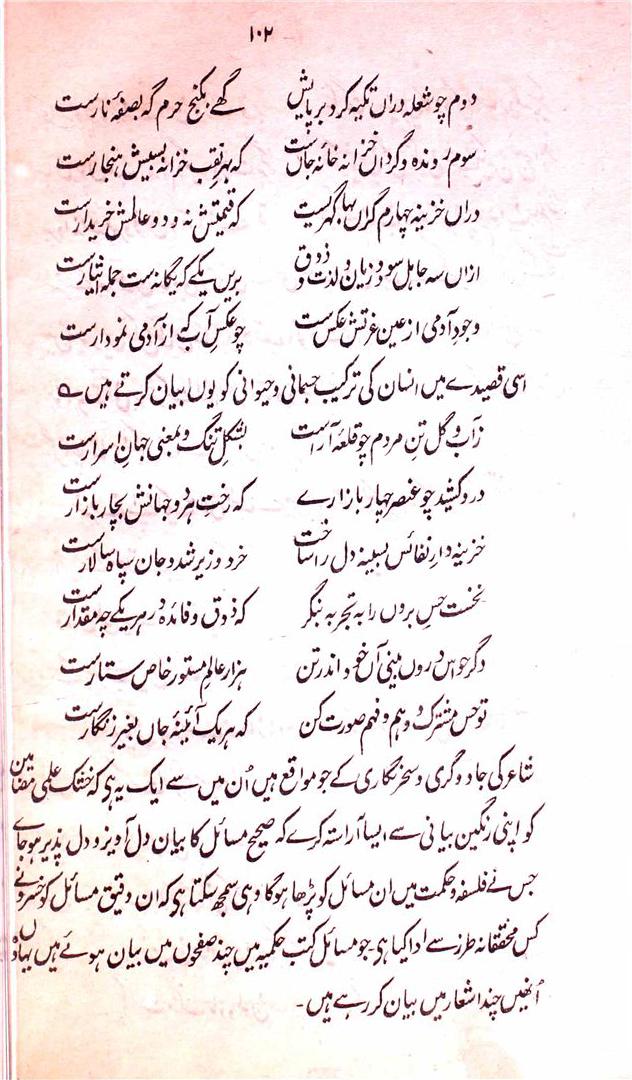 ۱۰۲
دوم چو شعله دراں تکیہ کرد بر پایش گہے بکنج حرم گہ بصفۂ نارست
سوم روندہ و گرداں خزانہ خانہ جاں ست کہ بہر نقب خزانہ بسیش ہنجارست
دراں خزینہ چہارم گراں بہا گہریست کہ قیمتیش نہ و دو عالمش خریدارست
ازاں سہ جاہل سود و زیان و لذت و ذوق بریں یکے کہ یگانہ ست جملہ ایثارست
وجود آدمی از عین عزتش عکس ست چو عکس آب کہ از آدمی نمودارست
اسی قصیدے میں انسان کی ترکیب جسمانی و حیوانی کو یوں بیان کرتے ہیں ؎
ز آب و گل تن مردم چو قلعۂ آراست بشکل تنگ و بمعنی جہان اسرارست
درو کشید چو عنصر چہار بازارے کہ رخت ہر دو جہانش بچار بازارست
خزینہ دار نفائس بسینہ دل را ساخت خرد وزیر شد و جان سپاہ سالارست
نخست حس بروں را بہ تجربہ بنگر کہ ذوق و فائدہ در ہر یکے چہ مقدارست
دگر حواس دروں بینی آں خود اندر تن ہزار عالم مستور خاص ستارست
تو حس مشترک و وہم و فہم صورت کن کہ ہر یک آئینۂ جاں بغیر زنگارست
شاعر کی جادوگری و سحر نگاری کے جو مواقع ہیں اُن میں سے ایک یہ ہی کہ خشک علمی مضامین
کو اپنی رنگین بیانی سے ایسا آراستہ کرے کہ صحیح مسائل کا بیان دل آویز و دل پذیر ہو جاے
جس نے فلسفہ و حکمت میں ان مسائل کو پڑھا ہوگا وہی سمجھ سکتا ہی کہ ان دقیق مسائل کو خسرو نے
کس محققانہ طرز سے ادا کیا ہی۔ جو مسائل کتب حکمیہ میں چند صفحوں میں بیان ہوئے ہیں یہاں وہ
اُنھیں چند اشعار میں بیان کر رہے ہیں۔